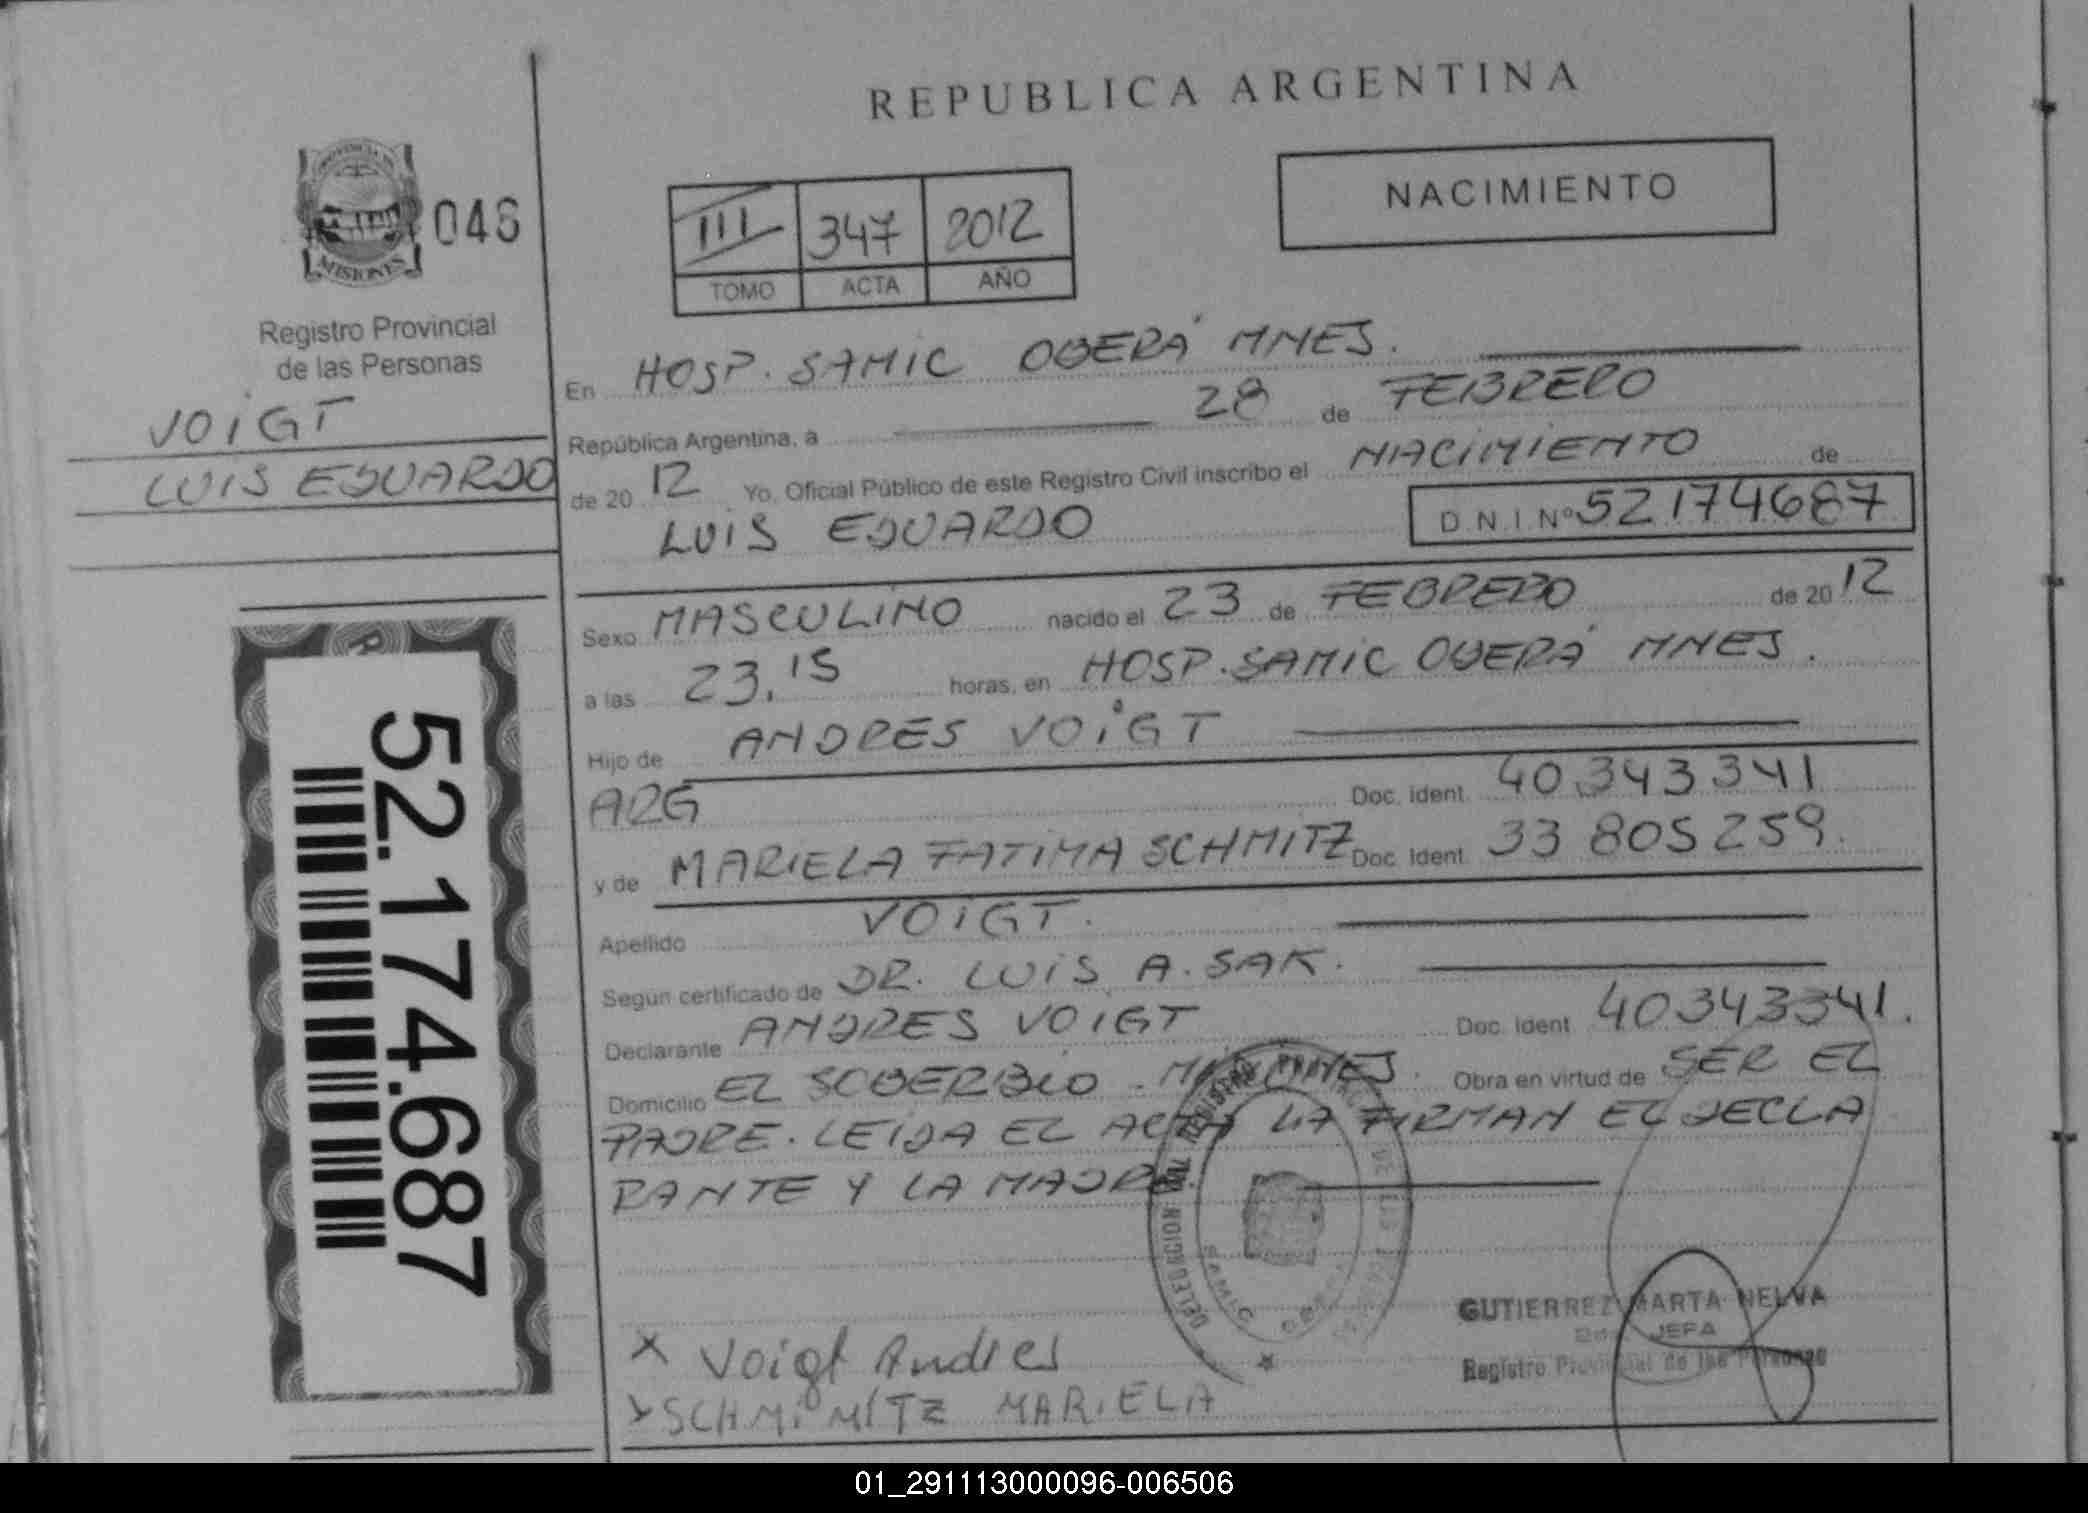 REPUBLICA ARGENTINA
NACIMIENTO
PROVINCIA DE
MISIONES
046
III 347 2012
TOMO ACTA AÑO
Registro Provincial
de las Personas
VOIGT
LUIS EDUARDO
En HOSP. SAMIC OBERÁ MNES.
República Argentina, a 28 de FEBRERO
de 20 12 Yo, Oficial Público de este Registro Civil inscribo el NACIMIENTO de
LUIS EDUARDO D.N.I. Nº 52174687
Sexo MASCULINO nacido el 23 de FEBRERO de 20 12
a las 23.15 horas, en HOSP. SAMIC OBERÁ MNES.
Hijo de ANDRES VOIGT
ARG Doc. Ident. 40.343341
y de MARIELA FATIMA SCHMITZ Doc. Ident. 33 805 259.
Apellido VOIGT.
Según certificado de DR. LUIS A. SAK.
Declarante ANDRES VOIGT Doc. Ident 40343341.
Domicilio EL SOBERBIO. Obra en virtud de SER EL
PADRE. LEIDA EL ACTA LA FIRMAN EL DECLA
RANTE Y LA MADRE.
52.174.687
DELEGACION
SAMIC
X Voigt Andres
SCHMIMITZ MARIELA
GUTIERREZ MARTA NELVA
JEFA
Registro Provincial de las Personas
01_291113000096-006506